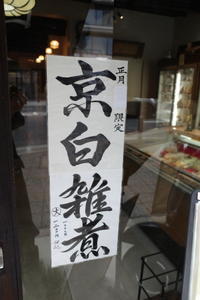 正月
限定
京白雑煮